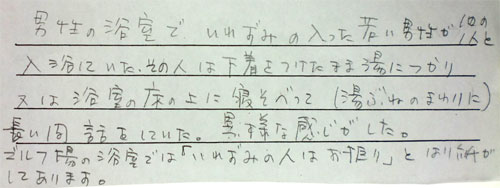 男性の浴室で いれずみの入った若い男性が他の1人と
入浴していた。その人は下着をつけたまま湯につかり
又は浴室の床の上に寝そべって(湯ぶねのまわりに)
長い間話をしていた。異様な感じがした。
ゴルフ場の浴室では「いれずみの人はお断り」とはり紙が
してあります。